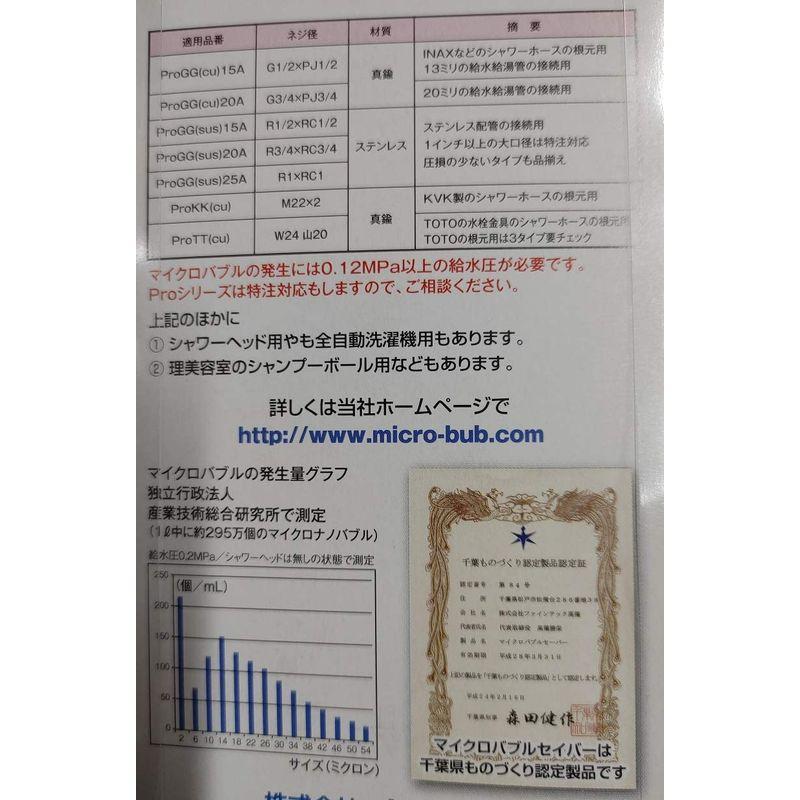 適用品番 ネジ径 材質 摘要
ProGG(cu)15A G1/2×PJ1/2 真鍮 INAXなどのシャワーホースの根元用
13ミリの給水給湯管の接続用
ProGG(cu)20A G3/4×PJ3/4 20ミリの給水給湯管の接続用
ProGG(sus)15A R1/2×RC1/2 ステンレス ステンレス配管の接続用
ProGG(sus)20A R3/4×RC3/4 1インチ以上の大口径は特注対応
ProGG(sus)25A R1×RC1 圧損の少ないタイプも品揃え
ProKK(cu) M22×2 真鍮 KVK製のシャワーホースの根元用
ProTT(cu) W24 山20 TOTOの水栓金具のシャワーホースの根元用
TOTOの根元用は3タイプ要チェック
マイクロバブルの発生には0.12MPa以上の給水圧が必要です。
Proシリーズは特注対応もしますので、ご相談ください。
上記のほかに
① シャワーヘッド用やも全自動洗濯機用もあります。
② 理美容室のシャンプーボール用などもあります。
詳しくは当社ホームページで
http://www.micro-bub.com
マイクロバブルの発生量グラフ
独立行政法人
産業技術総合研究所で測定
(1ℓ中に約295万個のマイクロナノバブル)
給水圧0.2MPa/シャワーヘッドは無しの状態で測定
(個/mL)
250
200
150
100
50
0
2 6 10 14 18 22 26 30 34 38 42 46 50 54
サイズ(ミクロン)
千葉ものづくり認定製品認定証
認定番号 第84号
住所
会社名 株式会社ファインテック高橋
代表者氏名 代表取締役
製品名 マイクロバブルセーバー
有効期限 平成28年3月31日
上記の製品を「千葉ものづくり認定製品」として認定します。
平成24年2月16日
千葉県知事 森田健作
マイクロバブルセイバーは
千葉県ものづくり認定製品です